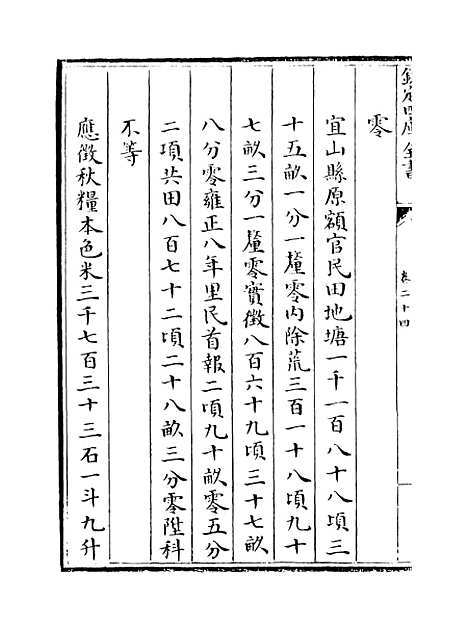 欽定四庫全書
卷二十四
零
宜山縣原額官民田地塘一千一百八十八頃三
十五畝一分一釐零内除荒三百一十八頃九十
七畝三分一釐零實徴八百六十九頃三十七畝
八分零雍正八年里民首報二頃九十畝零五分
二項共田八百七十二頃二十八畝三分零陞科
不等
應徴秋糧本色米三千七百三十三石一斗九升